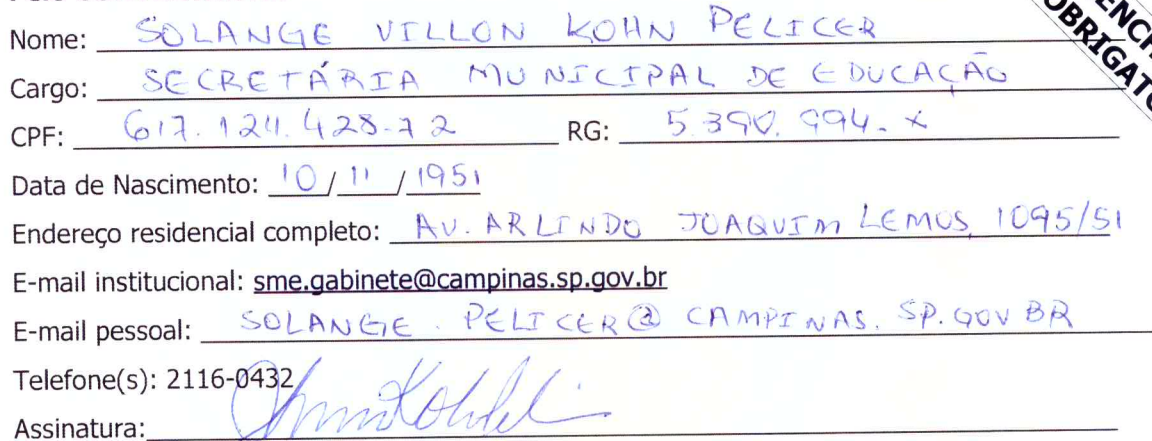 Nome: SOLANGE VILLON KOHN PELICER
Cargo: SECRETÁRIA MUNICIPAL DE EDUCAÇÃO
CPF: 617.124.428-72 RG: 5.390.994-X
Data de Nascimento: 10/11/1951
Endereço residencial completo: AV. ARLINDO JOAQUIM LEMOS, 1095/51
E-mail institucional: sme.gabinete@campinas.sp.gov.br
E-mail pessoal: SOLANGE.PELICER@CAMPINAS.SP.GOV BR
Telefone(s): 2116-0432
Assinatura: